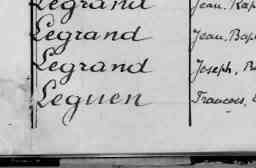 Legrand Jean. Bap
Legrand Jean. Bap
Legrand Joseph, B
Leguen Francois,